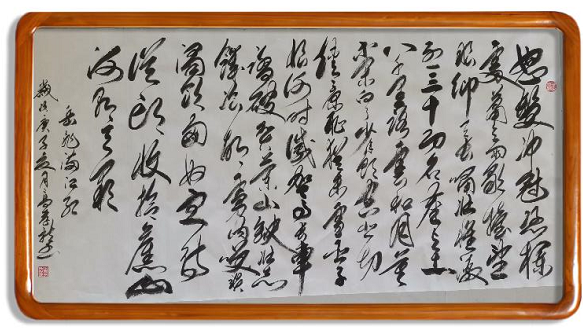 怒髮冲冠憑欄
處蕭蕭雨歇抬望
眼仰天長嘯壯懷激
烈三十功名塵與土
八千里路雲和月莫
等閑白了少年頭空悲切
靖康恥猶未雪臣子
恨何時滅駕長車
踏破賀蘭山缺壯志
飢餐胡虜肉笑談
渴飲匈奴血待
從頭收拾舊山
河朝天闕
岳飛滿江紅
歲次庚子夏月